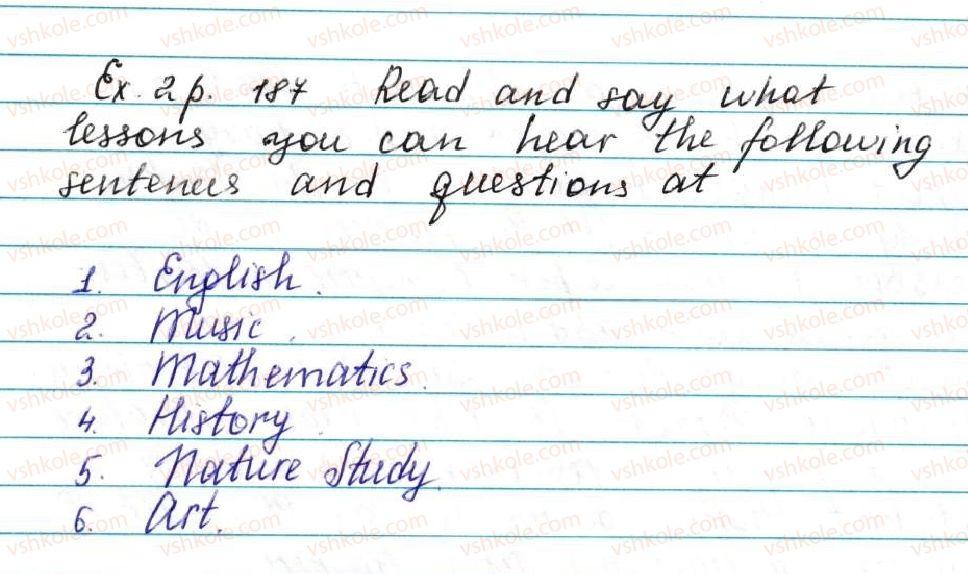 Ex. 2 p. 187 Read and say what
lessons you can hear the following
sentences and questions at
1. English.
2. Music.
3. Mathematics.
4. History.
5. Nature Study.
6. Art.